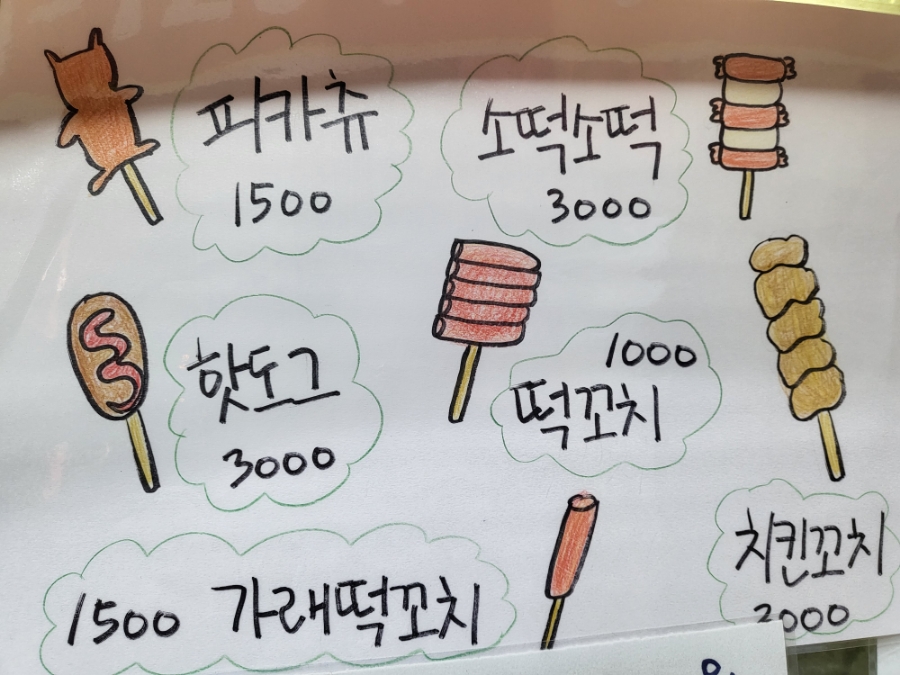 피카츄
1500
소떡소떡
3000
핫도그
3000
1000
떡꼬치
치킨꼬치
3000
1500 가래떡꼬치